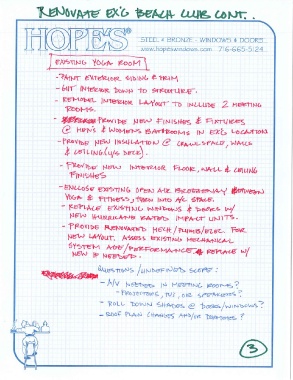 RENOVATE EX'G BEACH CLUB CONT...
HOPE'S®
STEEL & BRONZE - WINDOWS & DOORS
www.hopeswindows.com 716-665-5124
EXISTING YOGA ROOM
- PAINT EXTERIOR SIDING & TRIM
- GUT INTERIOR DOWN TO STRUCTURE.
- REMODEL INTERIOR LAYOUT TO INCLUDE 2 MEETING
ROOMS.
- PROVIDE NEW FINISHES & FIXTURES
@ MEN'S & WOMEN'S BATHROOMS IN EX'G LOCATION
- PROVIDE NEW INSULATION @ CRAWLSPACE, WALLS
& CEILING (U/S DECK).
- PROVIDE NEW INTERIOR FLOOR, WALL & CEILING
FINISHES
- ENCLOSE EXISTING OPEN AIR BREEZEWAY BETWEEN
YOGA & FITNESS, TURN INTO A/C SPACE.
- REPLACE EXISTING WINDOWS & DOORS W/
NEW HURRICANE RATED IMPACT UNITS.
- PROVIDE RENOVATED MECH/PLUMB/ELEC. FOR
NEW LAYOUT. ASSESS EXISTING MECHANICAL
SYSTEM AGE/PERFORMANCE & REPLACE W/
NEW IF NEEDED.
QUESTIONS/UNDEFINED SCOPE:
- A/V NEEDED IN MEETING ROOMS?
- PROJECTORS, TVS, OR SPEAKERS?
- ROLL DOWN SHADES @ DOORS/WINDOWS?
- ROOF PLAN CHANGES AND/OR
3